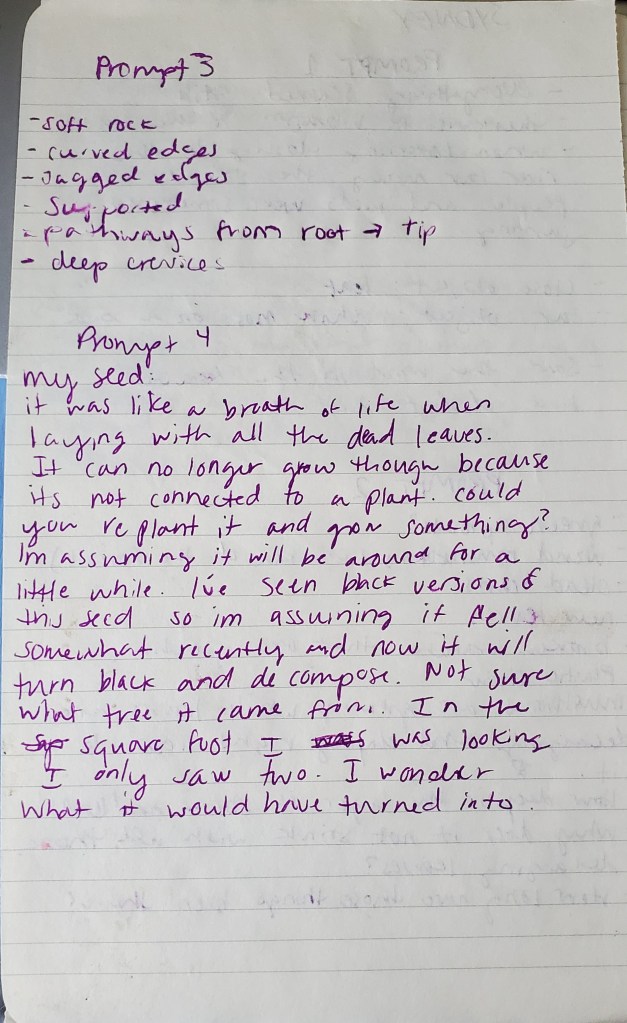 Prompt 3
- soft rock
- curved edges
- Jagged edges
- Supported
- pathways from root → tip
- deep crevices
Prompt 4
my seed:
it was like a breath of life when
laying with all the dead leaves.
It can no longer grow though because
its not connected to a plant. Could
you replant it and grow something?
Im assuming it will be around for a
little while. I've seen black versions of
this seed so im assuining it fell
somewhat recently and now it will
turn black and decompose. Not sure
what tree it came from. In the
square foot I was looking
I only saw two. I wonder
what it would have turned into.